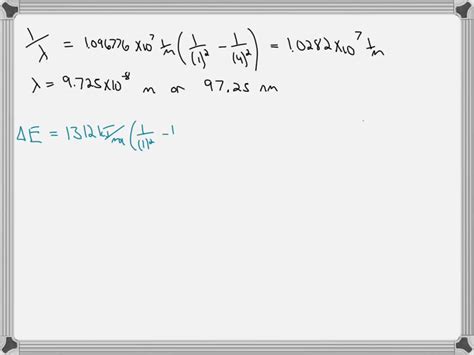 1/λ = 1.096776 ×10⁷ 1/m (1/(1)² - 1/(4)²) = 1.0282 ×10⁷ 1/m
λ = 9.725×10⁻⁸ m or 97.25 nm
ΔE = 1312 kJ/mol (1/(1)² - 1